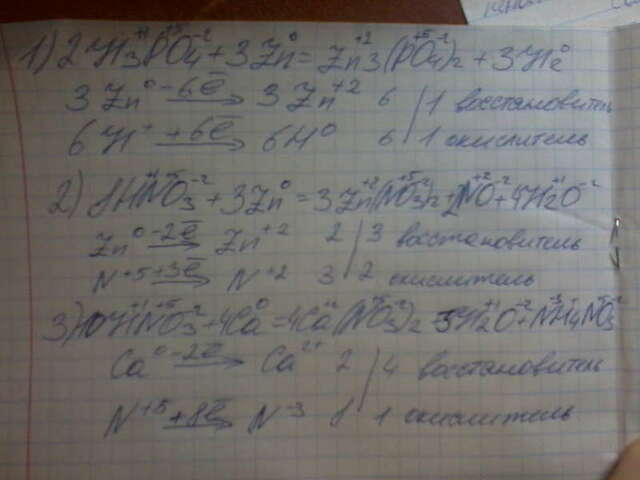 1) 2H₃⁺¹P⁺⁵O₄⁻² + 3Zn⁰ = Zn⁺²₃(P⁺⁵O₄⁻²)₂ + 3H₂⁰
3Zn⁰ -6ē → 3Zn⁺² 6 | 1 восстановитель
6H⁺ +6ē → 6H⁰ 6 | 1 окислитель
2) 8H⁺¹N⁺⁵O₃⁻² + 3Zn⁰ = 3Zn⁺²(N⁺⁵O₃⁻²)₂ + 2N⁺²O⁻² + 4H₂⁺¹O⁻²
Zn⁰ -2ē → Zn⁺² 2 | 3 восстановитель
N⁺⁵ +3ē → N⁺² 3 | 2 окислитель
3) 10H⁺¹N⁺⁵O₃⁻² + 4Ca⁰ = 4Ca⁺²(N⁺⁵O₃⁻²)₂ 3H₂⁺¹O⁻² + N⁻³H₄NO₃
Ca⁰ -2ē → Ca²⁺ 2 | 4 восстановитель
N⁺⁵ +8ē → N⁻³ 8 | 1 окислитель